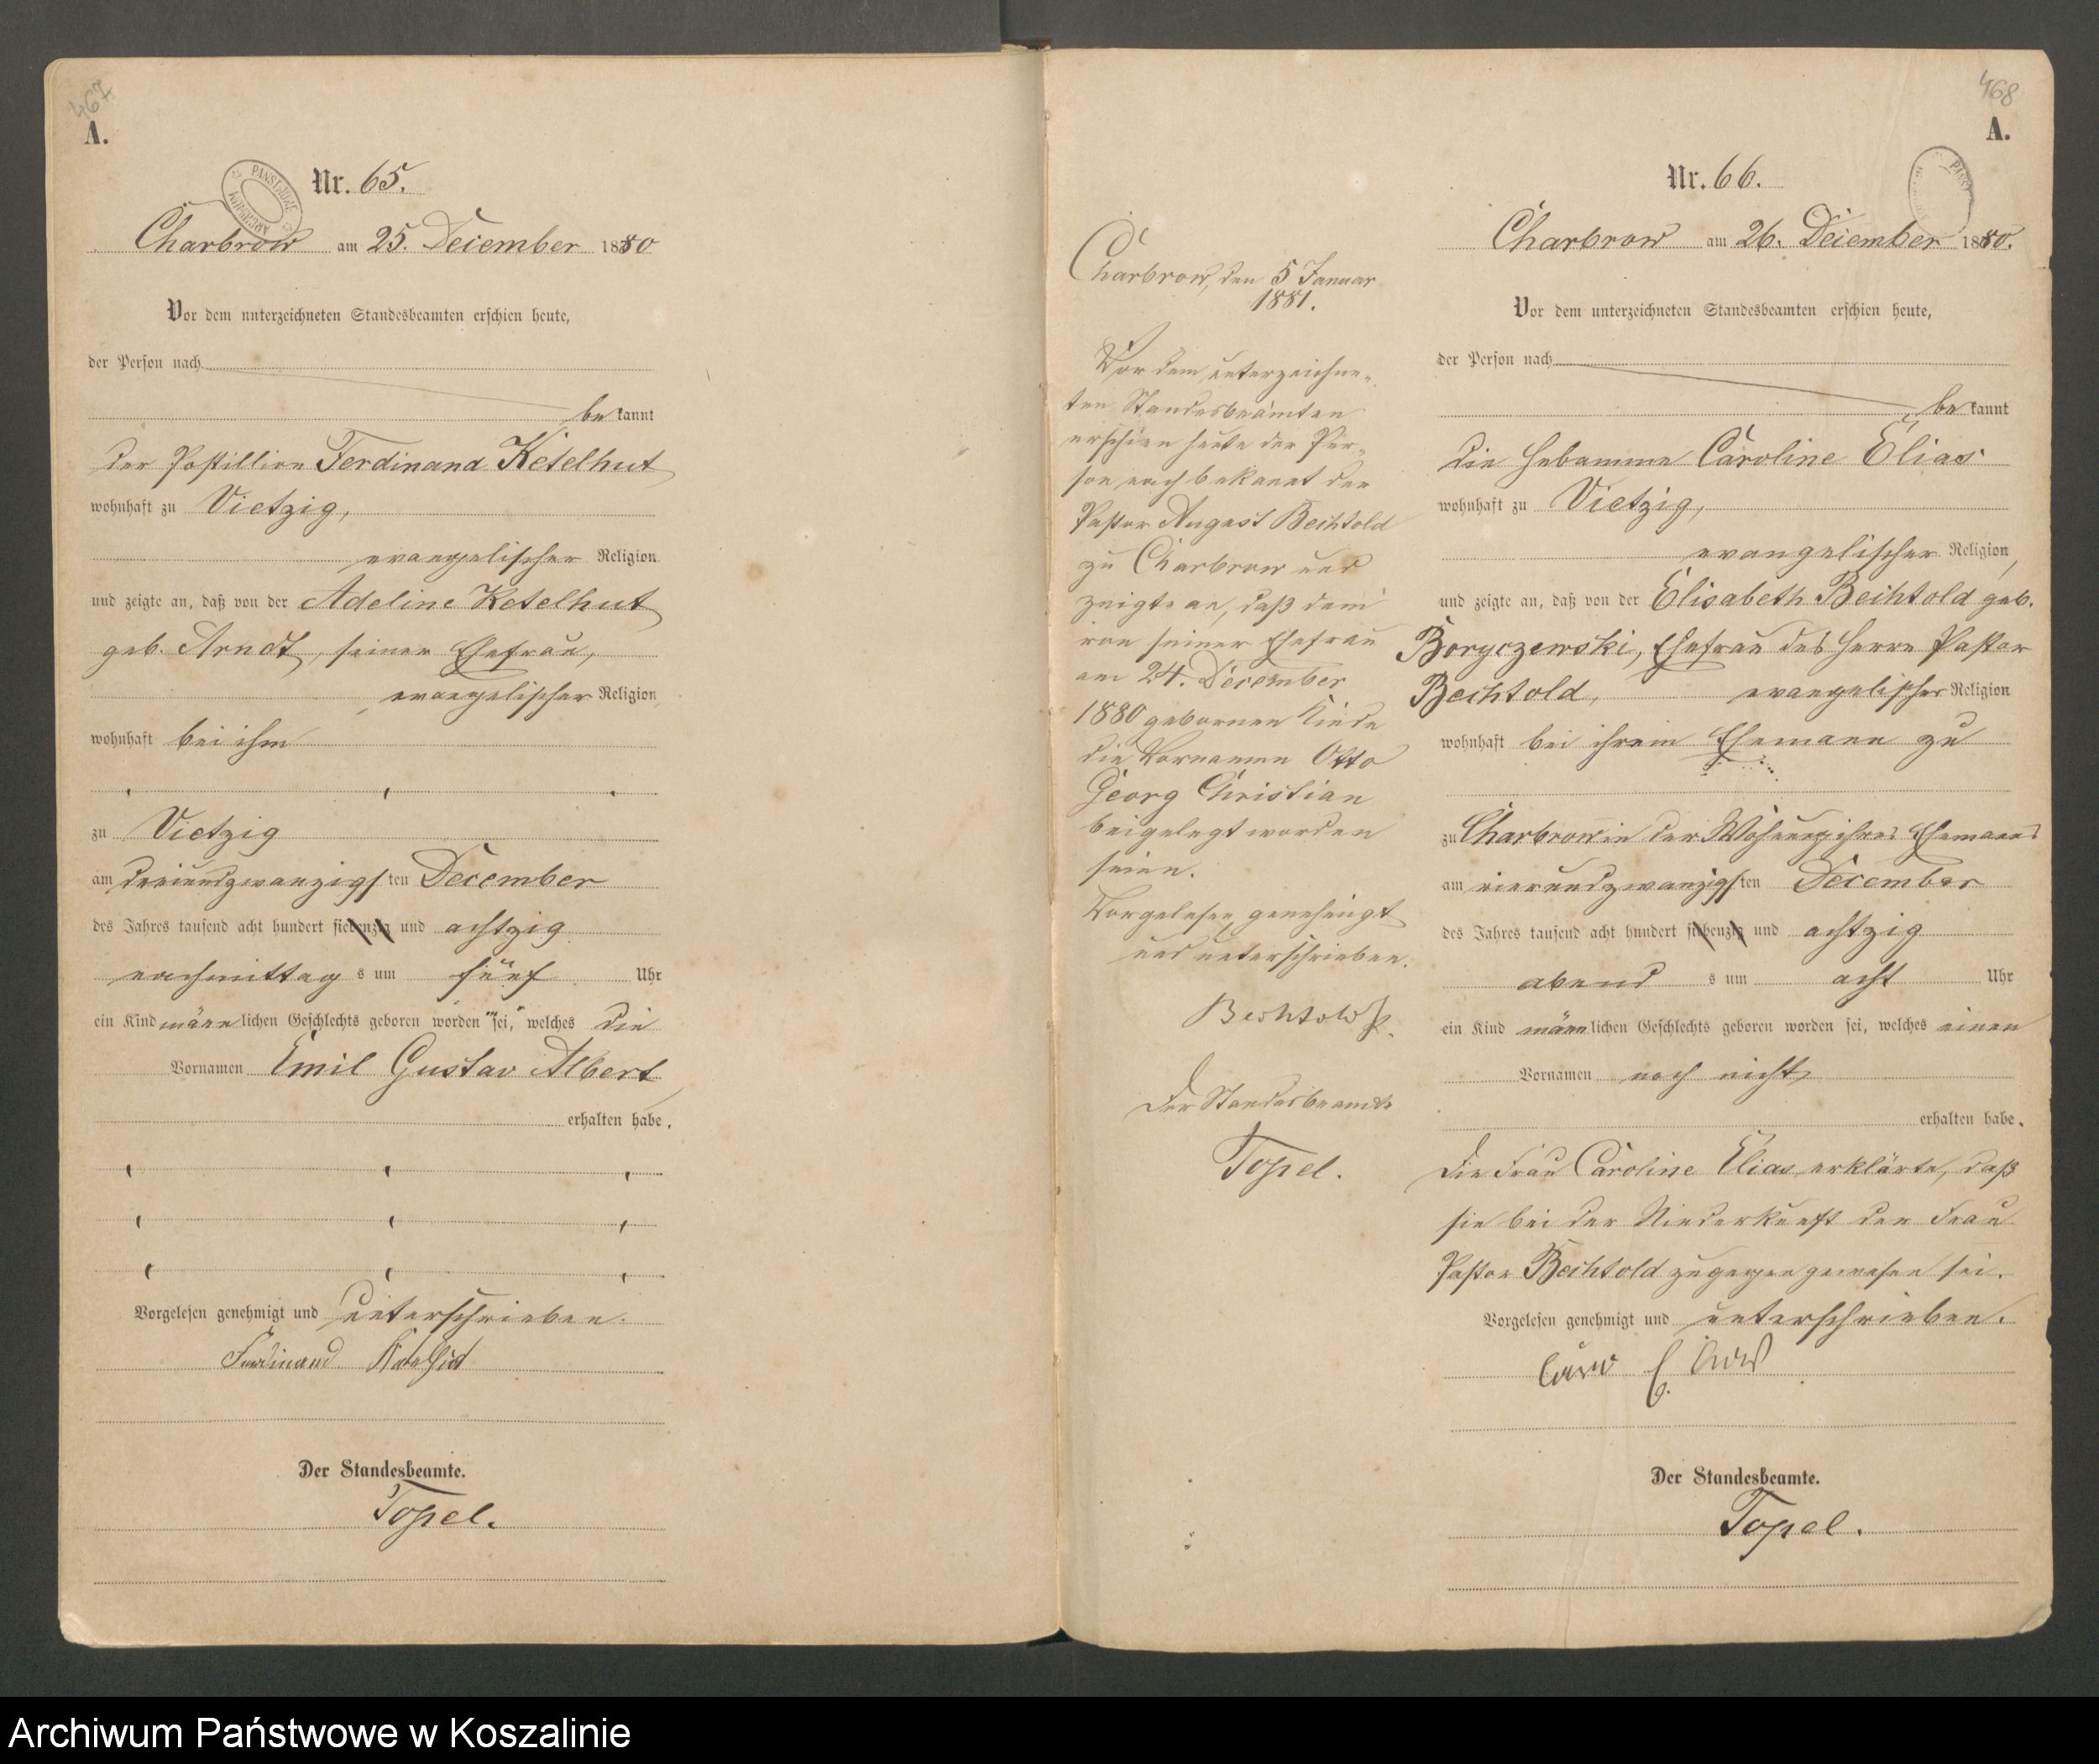 467
A.
Nr. 65.
Charbrow am 25. December 1880
Vor dem unterzeichneten Standesbeamten erschien heute,
der Person nach
bekannt
der Postillion Ferdinand Ketelhut
wohnhaft zu Vietzig,
evangelischer Religion
und zeigte an, daß von der Adeline Ketelhut
geb. Arndt, seiner Ehefrau,
evangelischer Religion
wohnhaft bei ihm
zu Vietzig
am dreiundzwanzigsten December
des Jahres tausend acht hundert siebenzig und achtzig
nachmittags um fünf Uhr
ein Kind männlichen Geschlechts geboren worden sei, welches die
Vornamen Emil Gustav Albert
erhalten habe.
Vorgelesen genehmigt und unterschrieben.
Ferdinand Ketelhut
Der Standesbeamte.
Topel.
Charbrow, den 5 Januar
1881.
Vor dem unterzeichne-
ten Standesbeamten
erschien heute der Per-
son nach bekannt der
Pastor August Bechtold
zu Charbrow und
zeigte an, daß dem
von seiner Ehefrau
am 24. December
1880 gebornen Kinde
die Vornamen Otto
Georg Christian
beigelegt worden
seien.
Vorgelesen, genehmigt
und unterschrieben.
Bechtold
Der Standesbeamte
Topel.
468
A.
Nr. 66.
Charbrow am 26. December 1880.
Vor dem unterzeichneten Standesbeamten erschien heute,
der Person nach
bekannt
die Hebamme Caroline Elias
wohnhaft zu Vietzig,
evangelischer Religion,
und zeigte an, daß von der Elisabeth Bechtold geb.
Boryczewski, Ehefrau des Herrn Pastor
Bechtold, evangelischer Religion
wohnhaft bei ihrem Ehemann zu
zu Charbrow in der Wohnung ihres Ehemanns
am vierundzwanzigsten December
des Jahres tausend acht hundert siebenzig und achtzig
abends um acht Uhr
ein Kind männlichen Geschlechts geboren worden sei, welches einen
Vornamen noch nicht
erhalten habe.
Die Frau Caroline Elias erklärte, daß
sie bei der Niederkunft der Frau
Pastor Bechtold zugegen gewesen sei.
Vorgelesen genehmigt und unterschrieben.
Der Standesbeamte.
Topel.
Archiwum Państwowe w Koszalinie